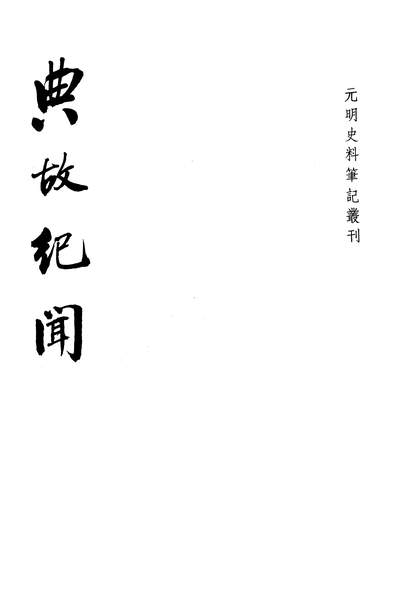 元明史料筆記叢刊
典故紀聞